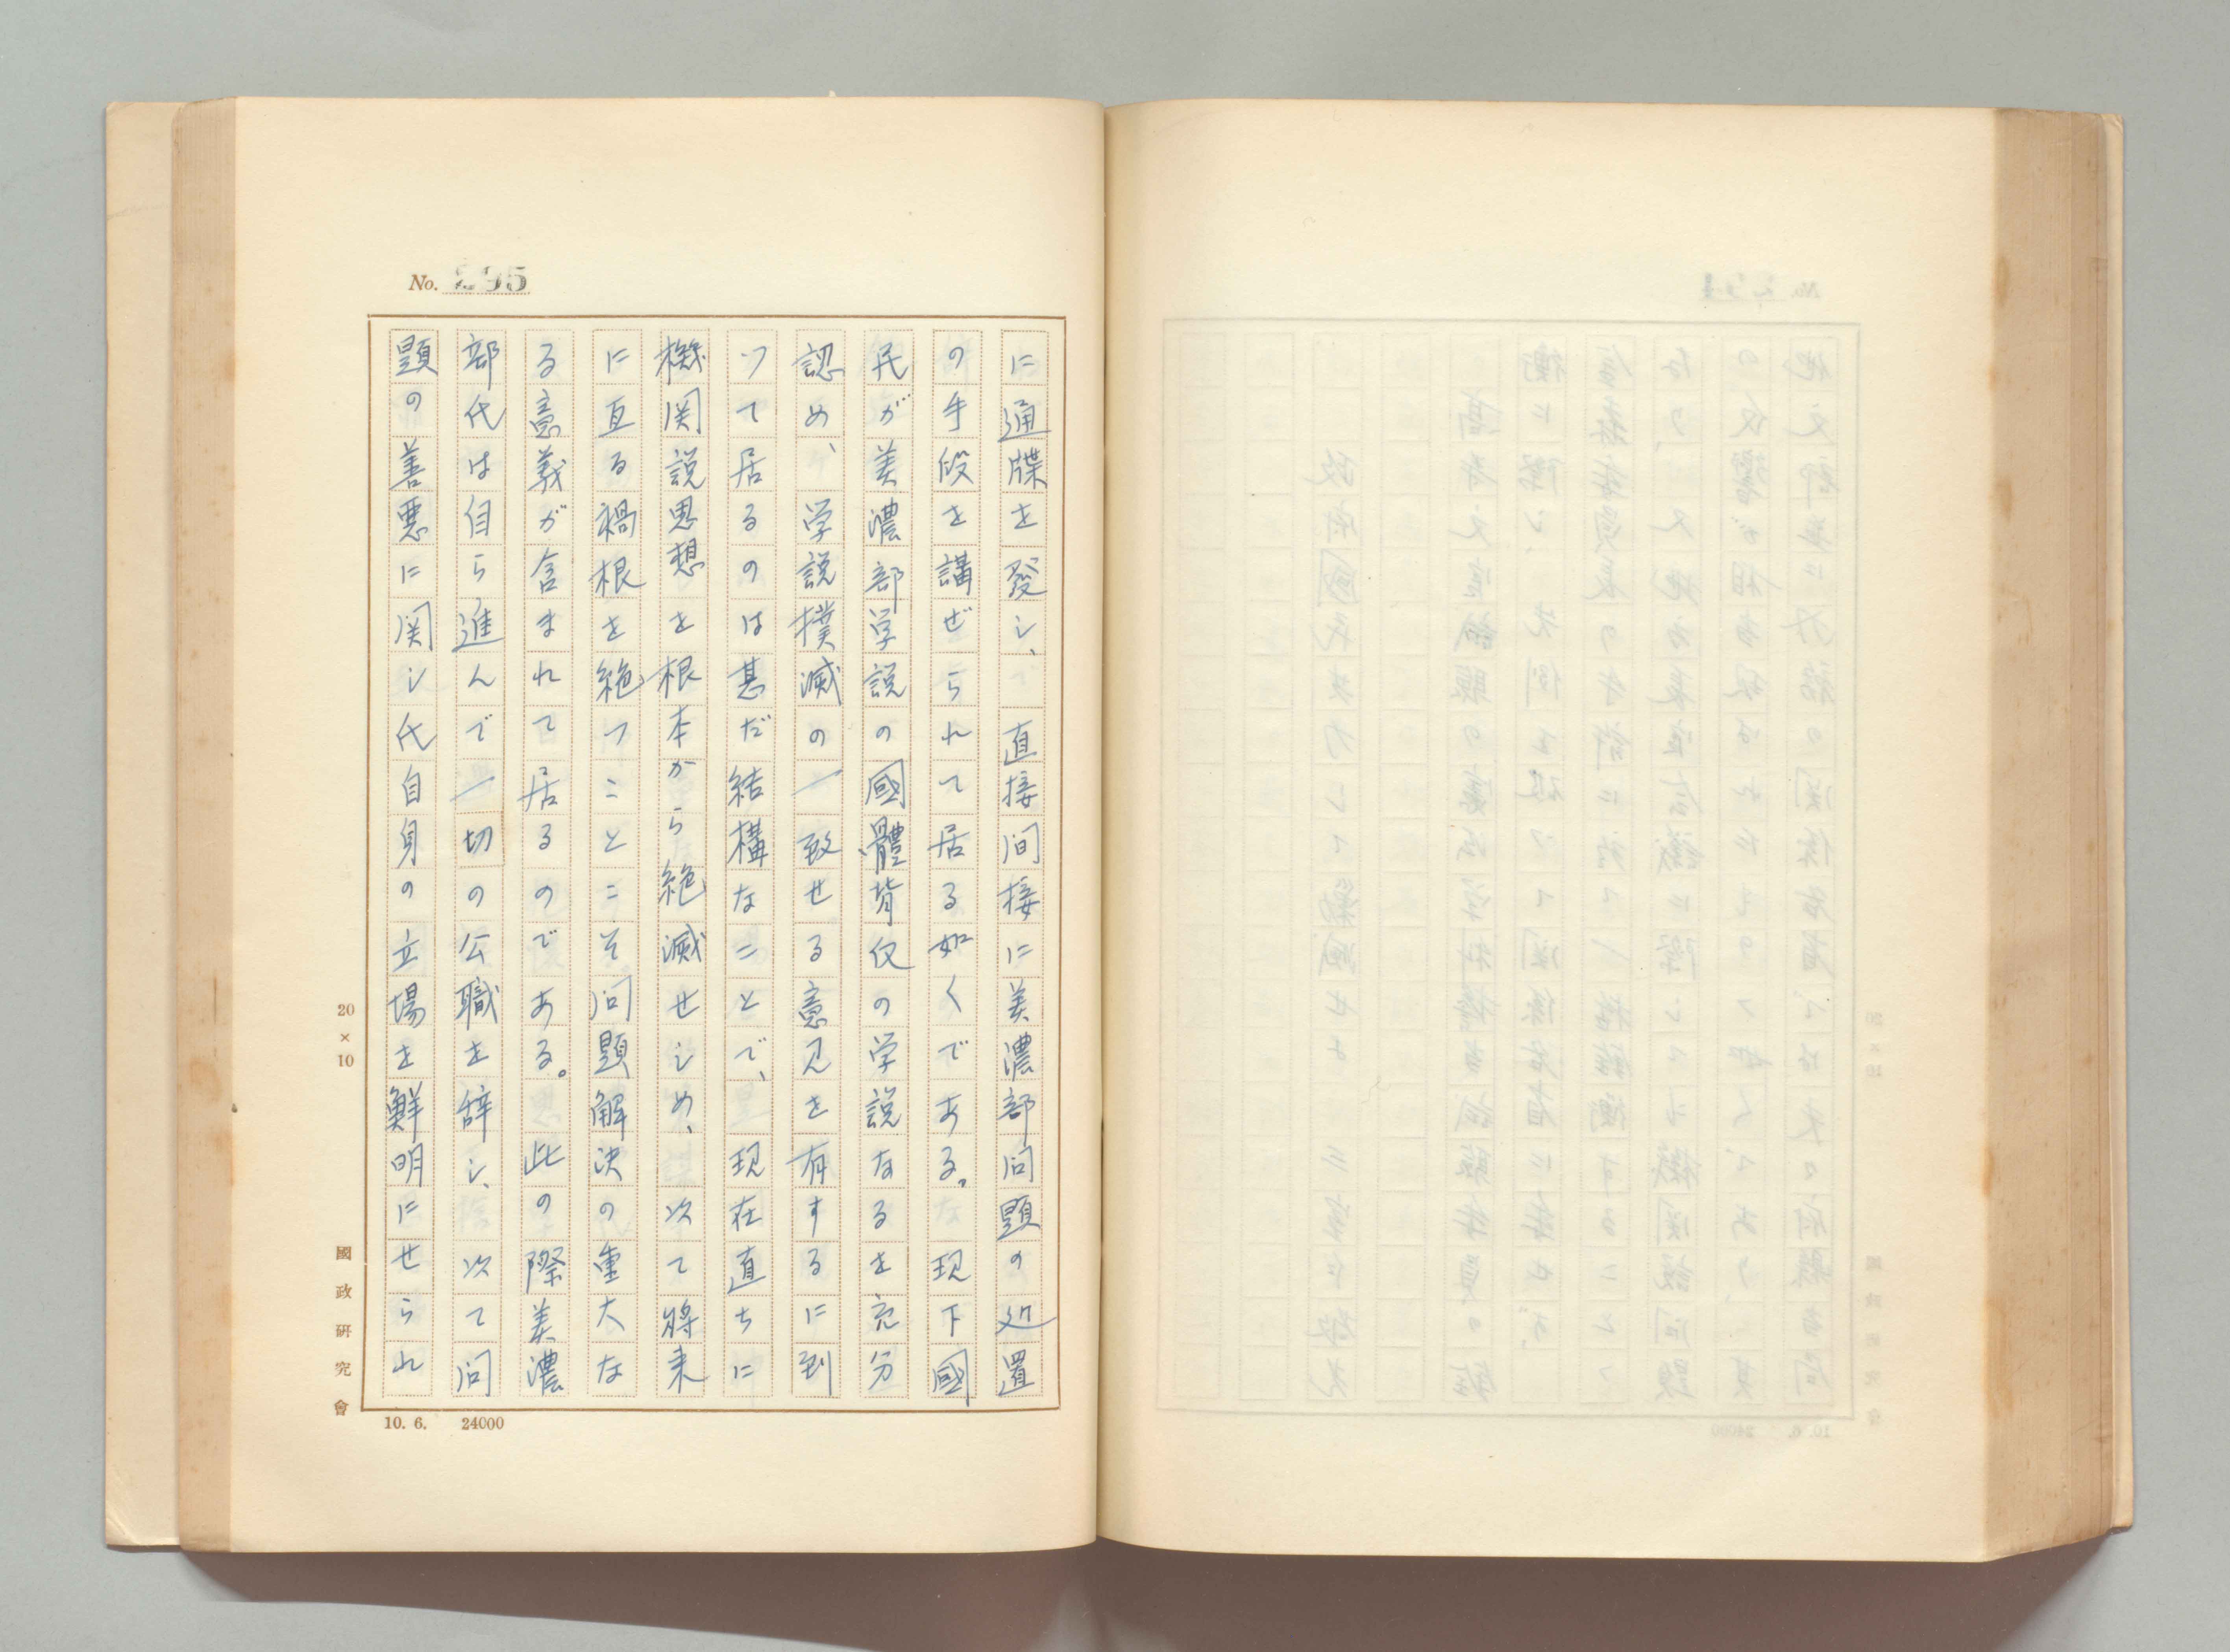 No. 295
に通牒を発し、直接間接に美濃部問題の処置
の手段を講ぜられて居る如くである。現下國
民が美濃部学説の國體背反の学説なるを充分
認め、学説撲滅の一致せる意見を有するに到
つて居るのは甚だ結構なことで、現在直ちに
機関説思想を根本から絶滅せしめ、次て將来
に亙る禍根を絶つことこそ問題解決の重大な
る意義が含まれて居るのである。此の際美濃
部代は自ら進んで一切の公職を辞し、次て問
題の善悪に関し代自身の立場を鮮明にせられ
20×10
國政研究會
10. 6. 24000